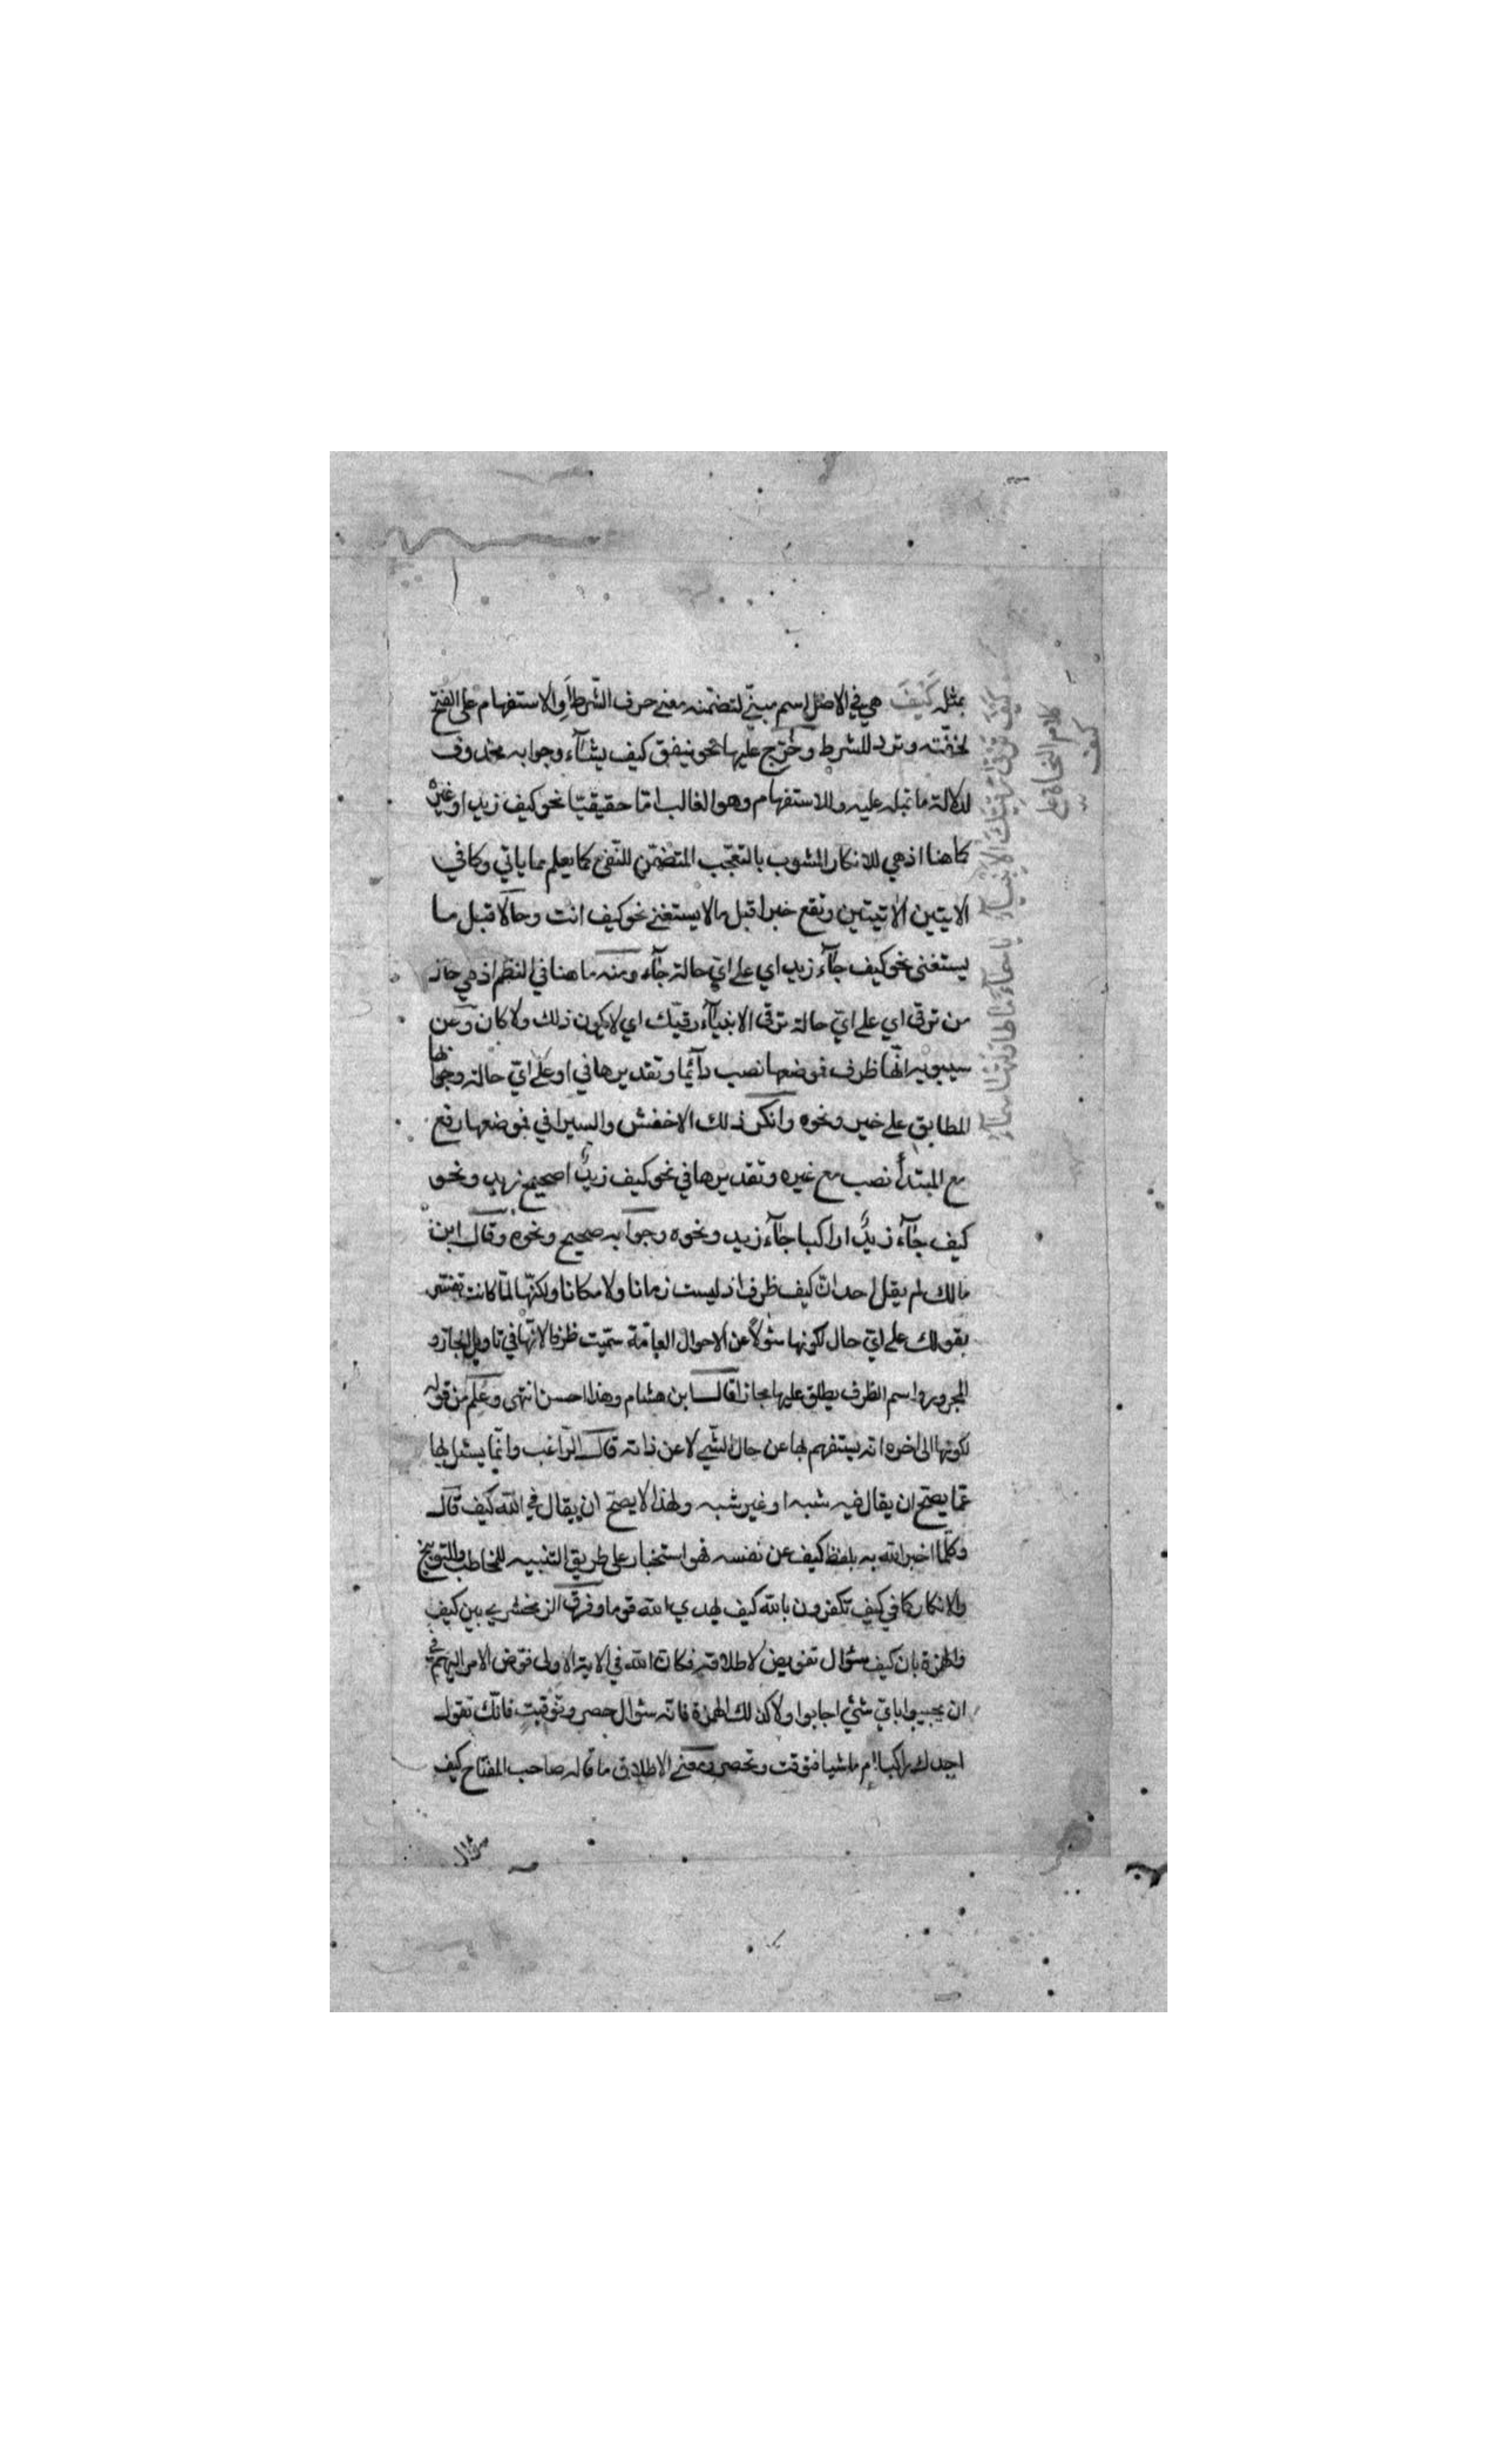 بمثله كَيْفَ هي في الاصل اسم مبنيّ لتضمّنه معنى حرف الشّرط أو الاستفهام على الفتح
لخفّته وترد للشرط وخُرّج عليها نحو ينفق كيف يشآء وجوابه محذوف
لدلالة ما قبله عليه وللاستفهام وهو الغالب امّا حقيقيّا نحو كيف زيد او غيره
كما هنا اذ هي للانكار المشوب بالتعجّب المتضمّن للنّفي كما يعلم مما ياتي وكما في
الايتين الآتيتين وتقع خبرا قبل ما لا يستغنى نحو كيف انت وحالا قبل ما
يستغنى نحو كيف جآء زيد اي على ايّ حالة جآء ومنه ما هنا في النظم اذ هي حال
من ترقى اي على ايّ حالة ترقى الانبيآء رقيّك اي لا يكون ذلك ولا كان وعن
سيبويه انّها ظرف فموضعها نصب دآئما وتقديرها في او على ايّ حالة وجوابها
المطابق على خير ونحوه وانكر ذلك الاخفش والسيرافي فموضعها رفع
مع المبتدأ نصب مع غيره وتقديرها في نحو كيف زيدٌ اصحيح زيد ونحو
كيف جآء زيدٌ اراكبا جآء زيد ونحوه وجوابه صحيح ونحوه وقال ابن
مالك لم يقل احد انّ كيف ظرف اذ ليست زمانا ولا مكانا ولكنّها لمّا كانت تفسّر
بقولك على ايّ حال لكونها سؤلاً عن الاحوال العامّة سمّيت ظرفا لانّها في تاويل الجار و
المجرور واسم الظرف يطلق عليها مجازا قال ابن هشام وهذا احسن انتهى وعُلم من قوله
لكونها الى اخره انه يستفهم بها عن حال الشّيء لا عن ذاته قال الرّاغب وانّما يسئل بها
عمّا يصحّ ان يقال فيه شبه او غير شبه ولهذا لا يصحّ ان يقال في الله كيف قال
وكلّما اخبر الله به بلفظ كيف عن نفسه فهو استخبار على طريق التنبيه للمخاطب وللتوبيخ
والانكار كما في كيف تكفرون بالله كيف يهدي الله قوما وفرق الزمخشري بين كيف
والهمزة بان كيف سؤال تفويض لاطلاقه فكان الله في الاية الاولى فوّض الامر اليهم في
ان يجيبوا باي شئ اجابوا ولا كذلك الهمزة فانّه سؤال حصر وتوقيت فانّك تقول
اجدك راكبا ام ماشيا فتوقت وتحصر ومعنى الاطلاق ما قاله صاحب المفتاح كيف
سؤال
كيف ترقى رقيّك الانبيآء يا سمآء ما طاولتها سمآء
كلام النحاة على
كيف